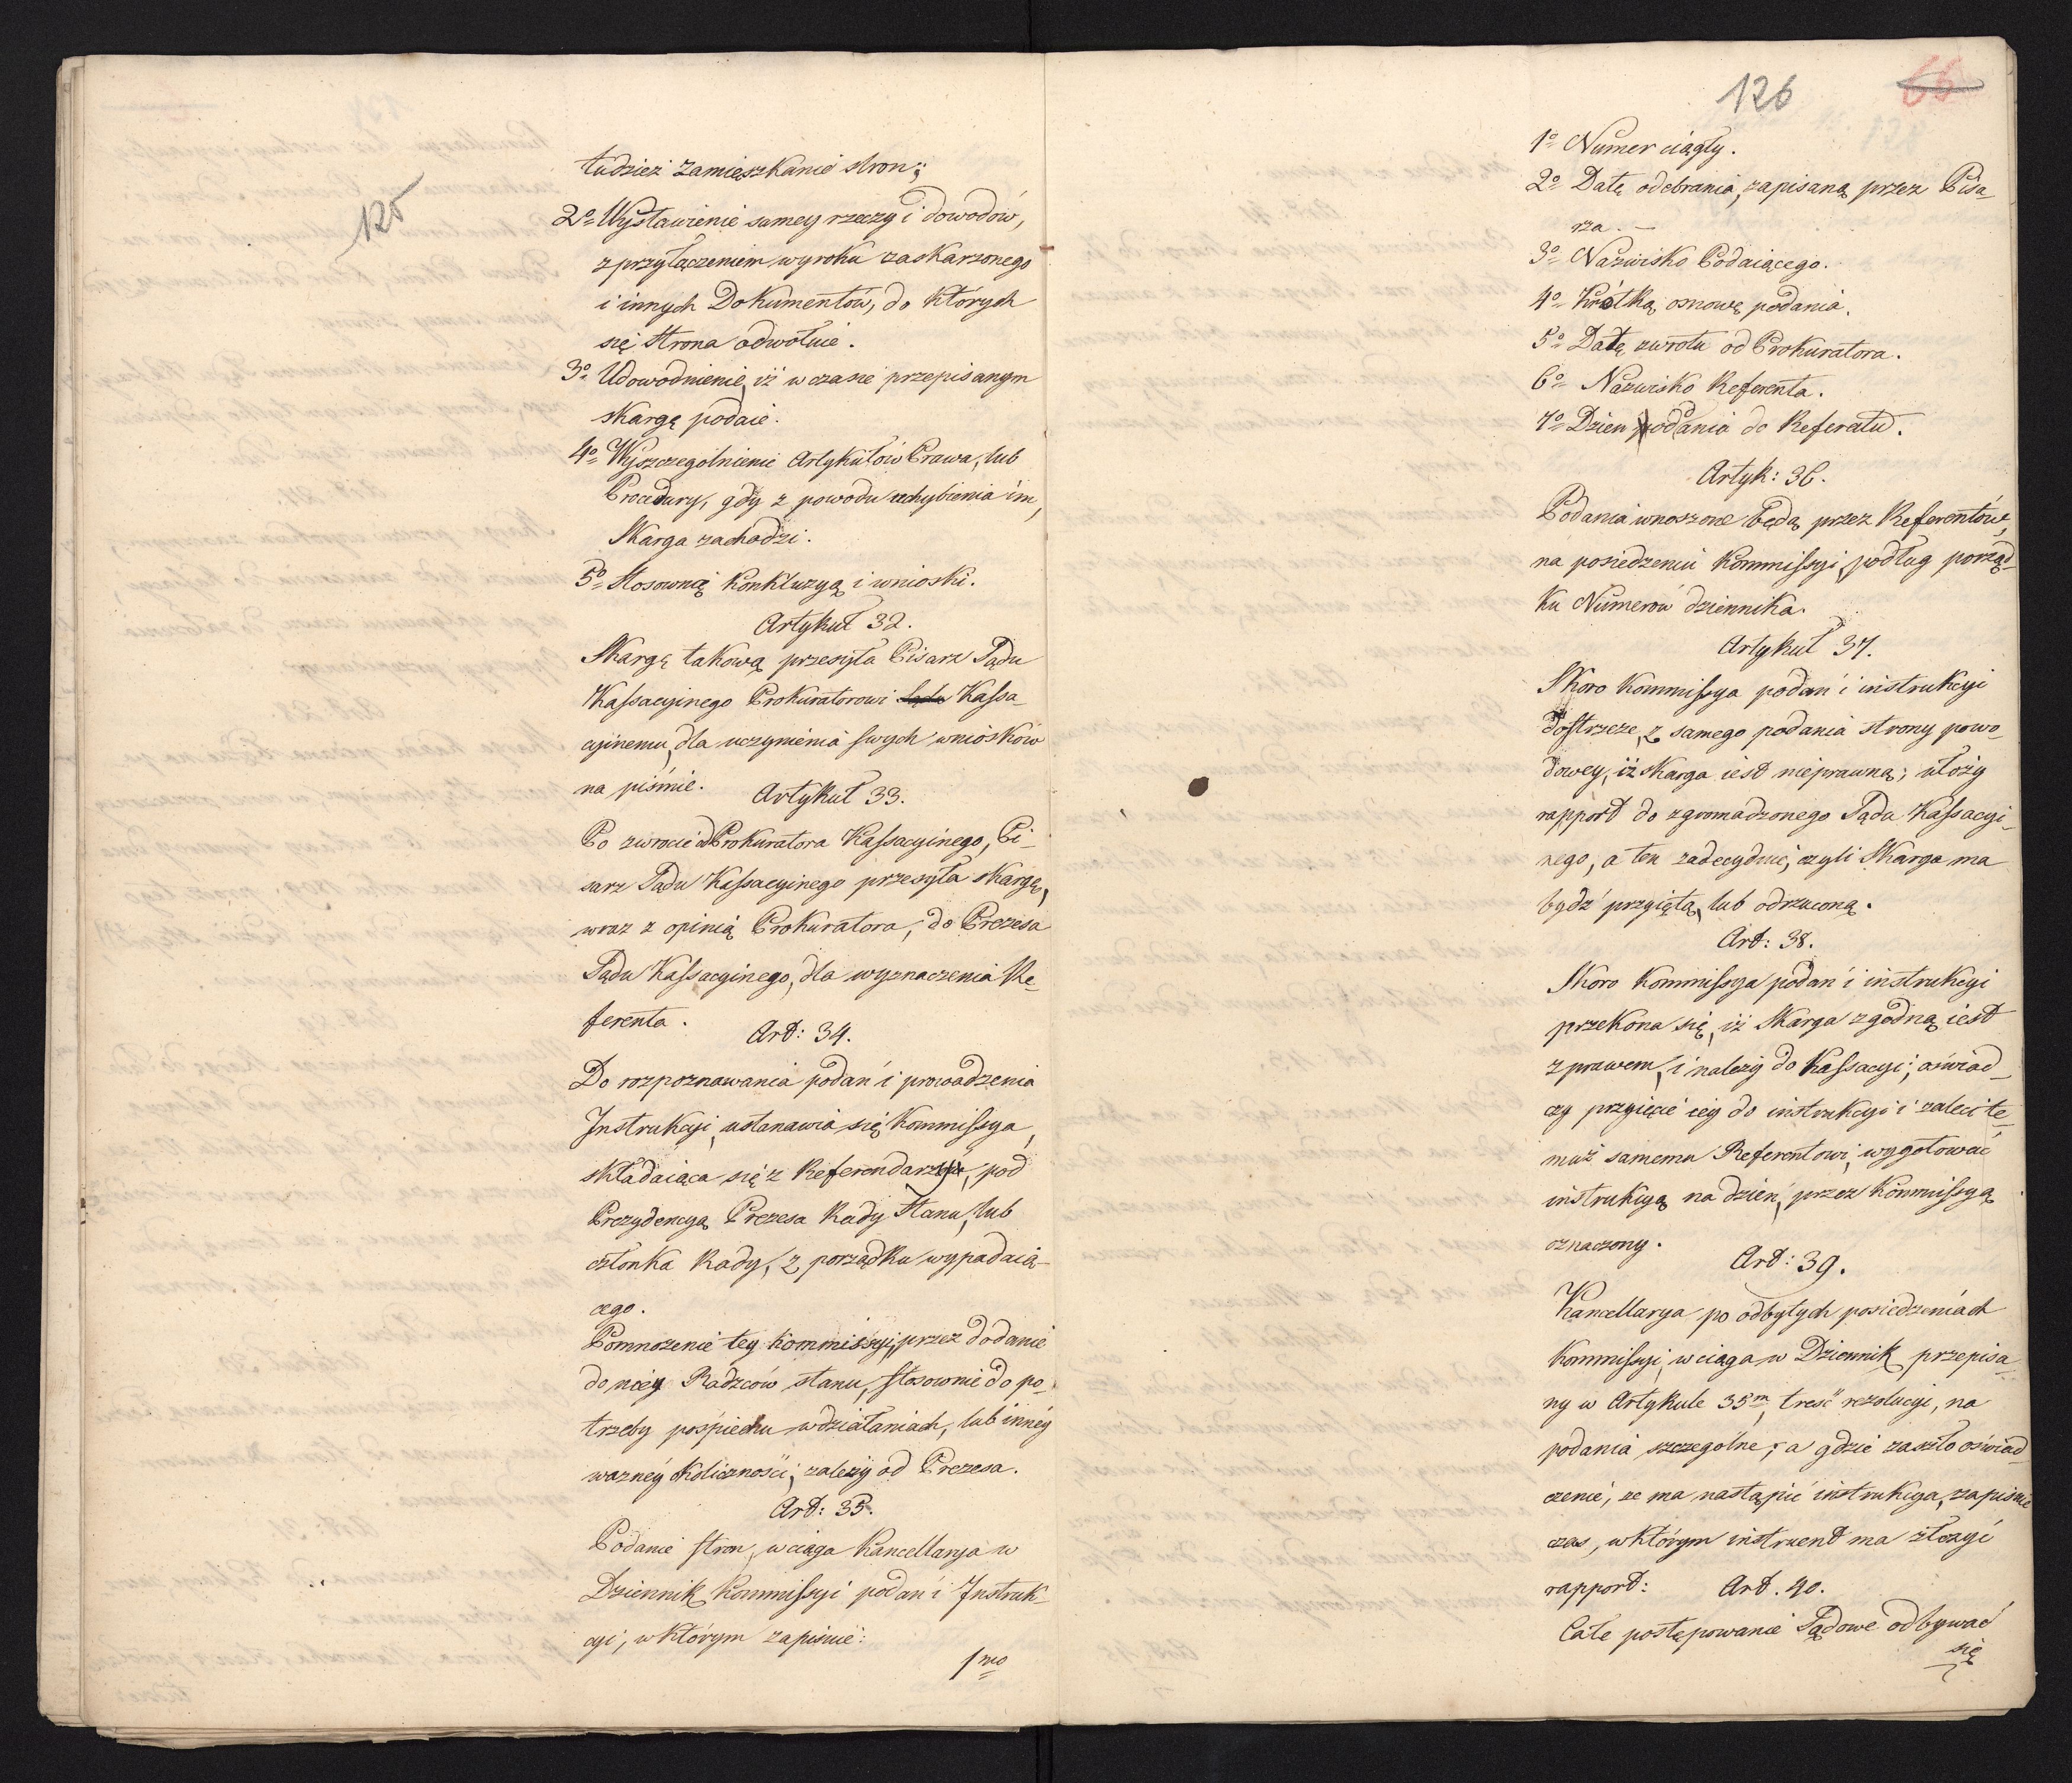 125
tudzież zamięszkanie stron;
2º Wystawienie samey rzeczy i dowodów,
z przyłączeniem wyroku zaskarżonego
i innych Dokumentów, do których
się strona odwołuie.
3º Udowodnienie, iż w czasie przepisanym
skargę podaie.
4º Wyszczególnienie Artykułów Prawa, lub
Procedury, gdy z powodu uchybienia im,
Skarga zachodzi.
5º Stosowną konkluzyą i wnioski.
Artykuł 32.
Skargę takową przesyła Pisarz Sądu
Kassacyinego Prokuratorowi Sądu Kassa-
cyinemu, dla uczynienia swych wniosków
na piśmie.
Artykuł 33.
Po zwrocie od Prokuratora Kassacyinego, Pi-
sarz Sądu Kassacyinego przesyła skargę,
wraz z opinią Prokuratora, do Prezesa
Sądu Kassacyinego, dla wyznaczenia Re-
ferenta.
Art: 34.
Do rozpoznawania podań i prowadzenia
Instrukcyi, ustanawia się Kommissya,
składaiąca się z Referendarzy, pod
Prezydencyą Prezesa Rady Stanu, lub
członka Rady, z porządku wypadaią-
cego.
Pomnożenie tey Kommissyi, przez dodanie
do niey Radzców stanu, stosownie do po-
trzeby pośpiechu w działaniach, lub inney
ważney okoliczności, zależy od Prezesa.
Art: 35.
Podanie stron, wciąga Kancellarya w
Dziennik Kommissyi podań i Instruk-
cyi, w którym zapisuie:
1mo
126
66
1º Numer ciągły.
2º Datę odebrania, zapisaną przez Pisa-
rza. —
3º Nazwisko Podaiącego.
4º Krótką osnowę podania.
5º Datę zwrotu od Prokuratora.
6º Nazwisko Referenta.
7º Dzien podania do Referatu.
Artyk: 36.
Podania wnoszone będą przez Referentów,
na posiedzeniu Kommissyi, podług porząd-
ku Numerów dziennika.
Artykuł 37.
Skoro Kommissya podań i instrukcyi
dostrzeże, z samego podania strony powo-
dowey, iż skarga iest nieprawną; ułoży
rapport do zgromadzonego Sądu Kassacyi-
nego, a ten zadecyduie, czyli Skarga ma
bydź przyiętą, lub odrzuconą.
Art: 38.
Skoro Kommissya podań i instrukcyi
przekona się, iż Skarga zgodną iest
z prawem, i należy do Kassacyi; oświad-
czy przyięcie iey do instrukcyi i zaleci te-
muż samemu Referentowi, wygotować
instrukcyą na dzień, przez Kommissyą
oznaczony.
Art: 39.
Kancellarya po odbytych posiedzeniach
Kommissyi, wciąga w Dziennik przepisa-
ny w Artykule 35m, treść rezolucyi, na
podania szczególne; a gdzie zaszło oświad-
czenie, że ma nastąpić instrukcya, zapisuie
czas, w którym instruent ma złożyć
rapport:
Art. 40.
Całe postępowanie Sądowe odbywać
się